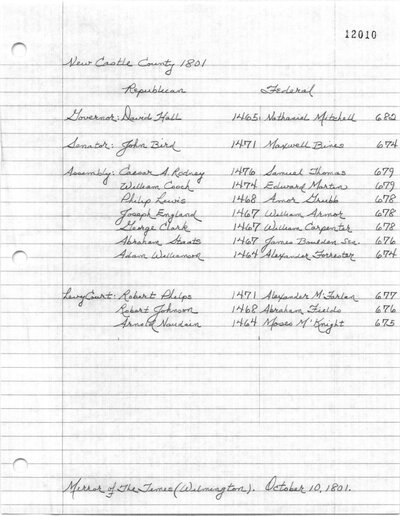 12010
New Castle County 1801
Republican Federal
Governor: David Hall 1465 Nathaniel Mitchell 682
Senator: John Bird 1471 Maxwell Bines 674
Assembly: Caesar A. Rodney 1476 Samuel Thomas 679
William Cooch 1474 Edward Martin 679
Philip Lewis 1468 Amor Grubb 678
Joseph England 1467 William Armor 678
George Clark 1467 William Carpenter 678
Abraham Staats 1467 James Boulden Sen. 676
Adam Williamson 1464 Alexander Forrester 674
Levy Court: Robert Phelps 1471 Alexander McFarlan 677
Robert Johnson 1468 Abraham Fields 676
Arnold Naudain 1464 Moses M'Knight 675
Mirror of The Times (Wilmington). October 10, 1801.